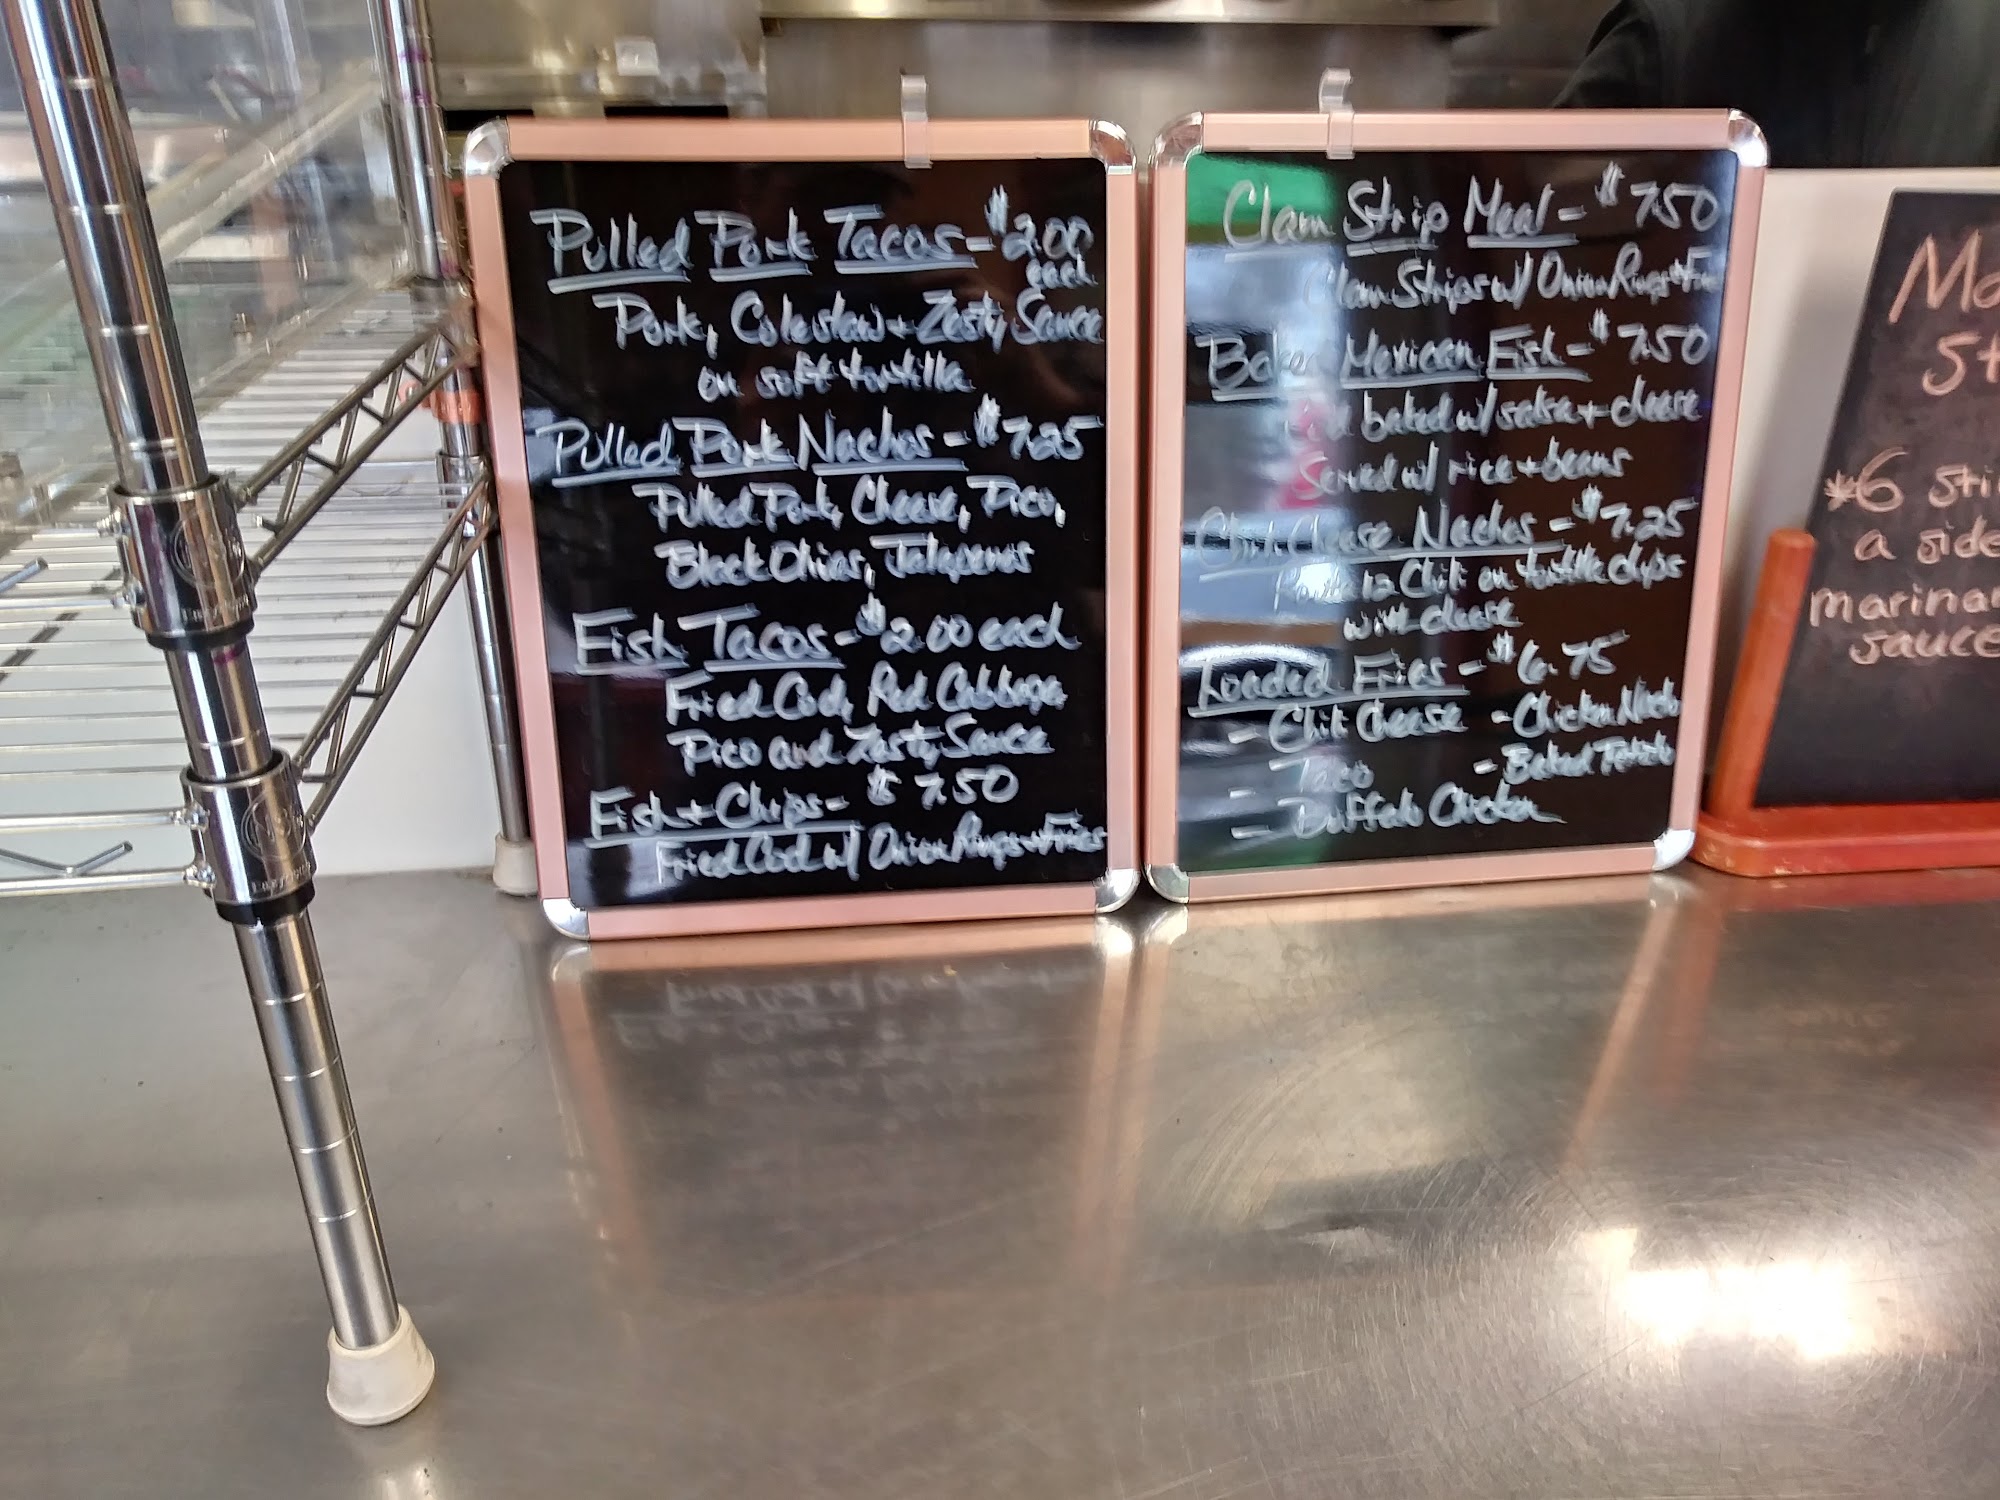 Pulled Pork Tacos - $2.00
each
Pork, Coleslaw + Zesty Sauce
on soft tortilla
Pulled Pork Nachos - $7.25
Pulled Pork, Cheese, Pico,
Black Olives, Jalapenos
Fish Tacos - $2.00 each
Fried Cod, Red Cabbage
Pico and Zesty Sauce
Fish + Chips - $7.50
Fried Cod w/ Onion Rings + Fries
Clam Strip Meal - $7.50
Clam Strips w/ Onion Rings +
Baked Mexican Fish - $7.50
baked w/ salsa + cheese
Served w/ rice + beans
Chili Cheese Nachos - $7.25
Chili on tortilla chips
with cheese
Loaded Fries - $6.75
- Chili Cheese - Chicken Nacho
- Taco - Baked Potato
- Buffalo Chicken
Mo
St
*6 sti
a side
marinar
sauce